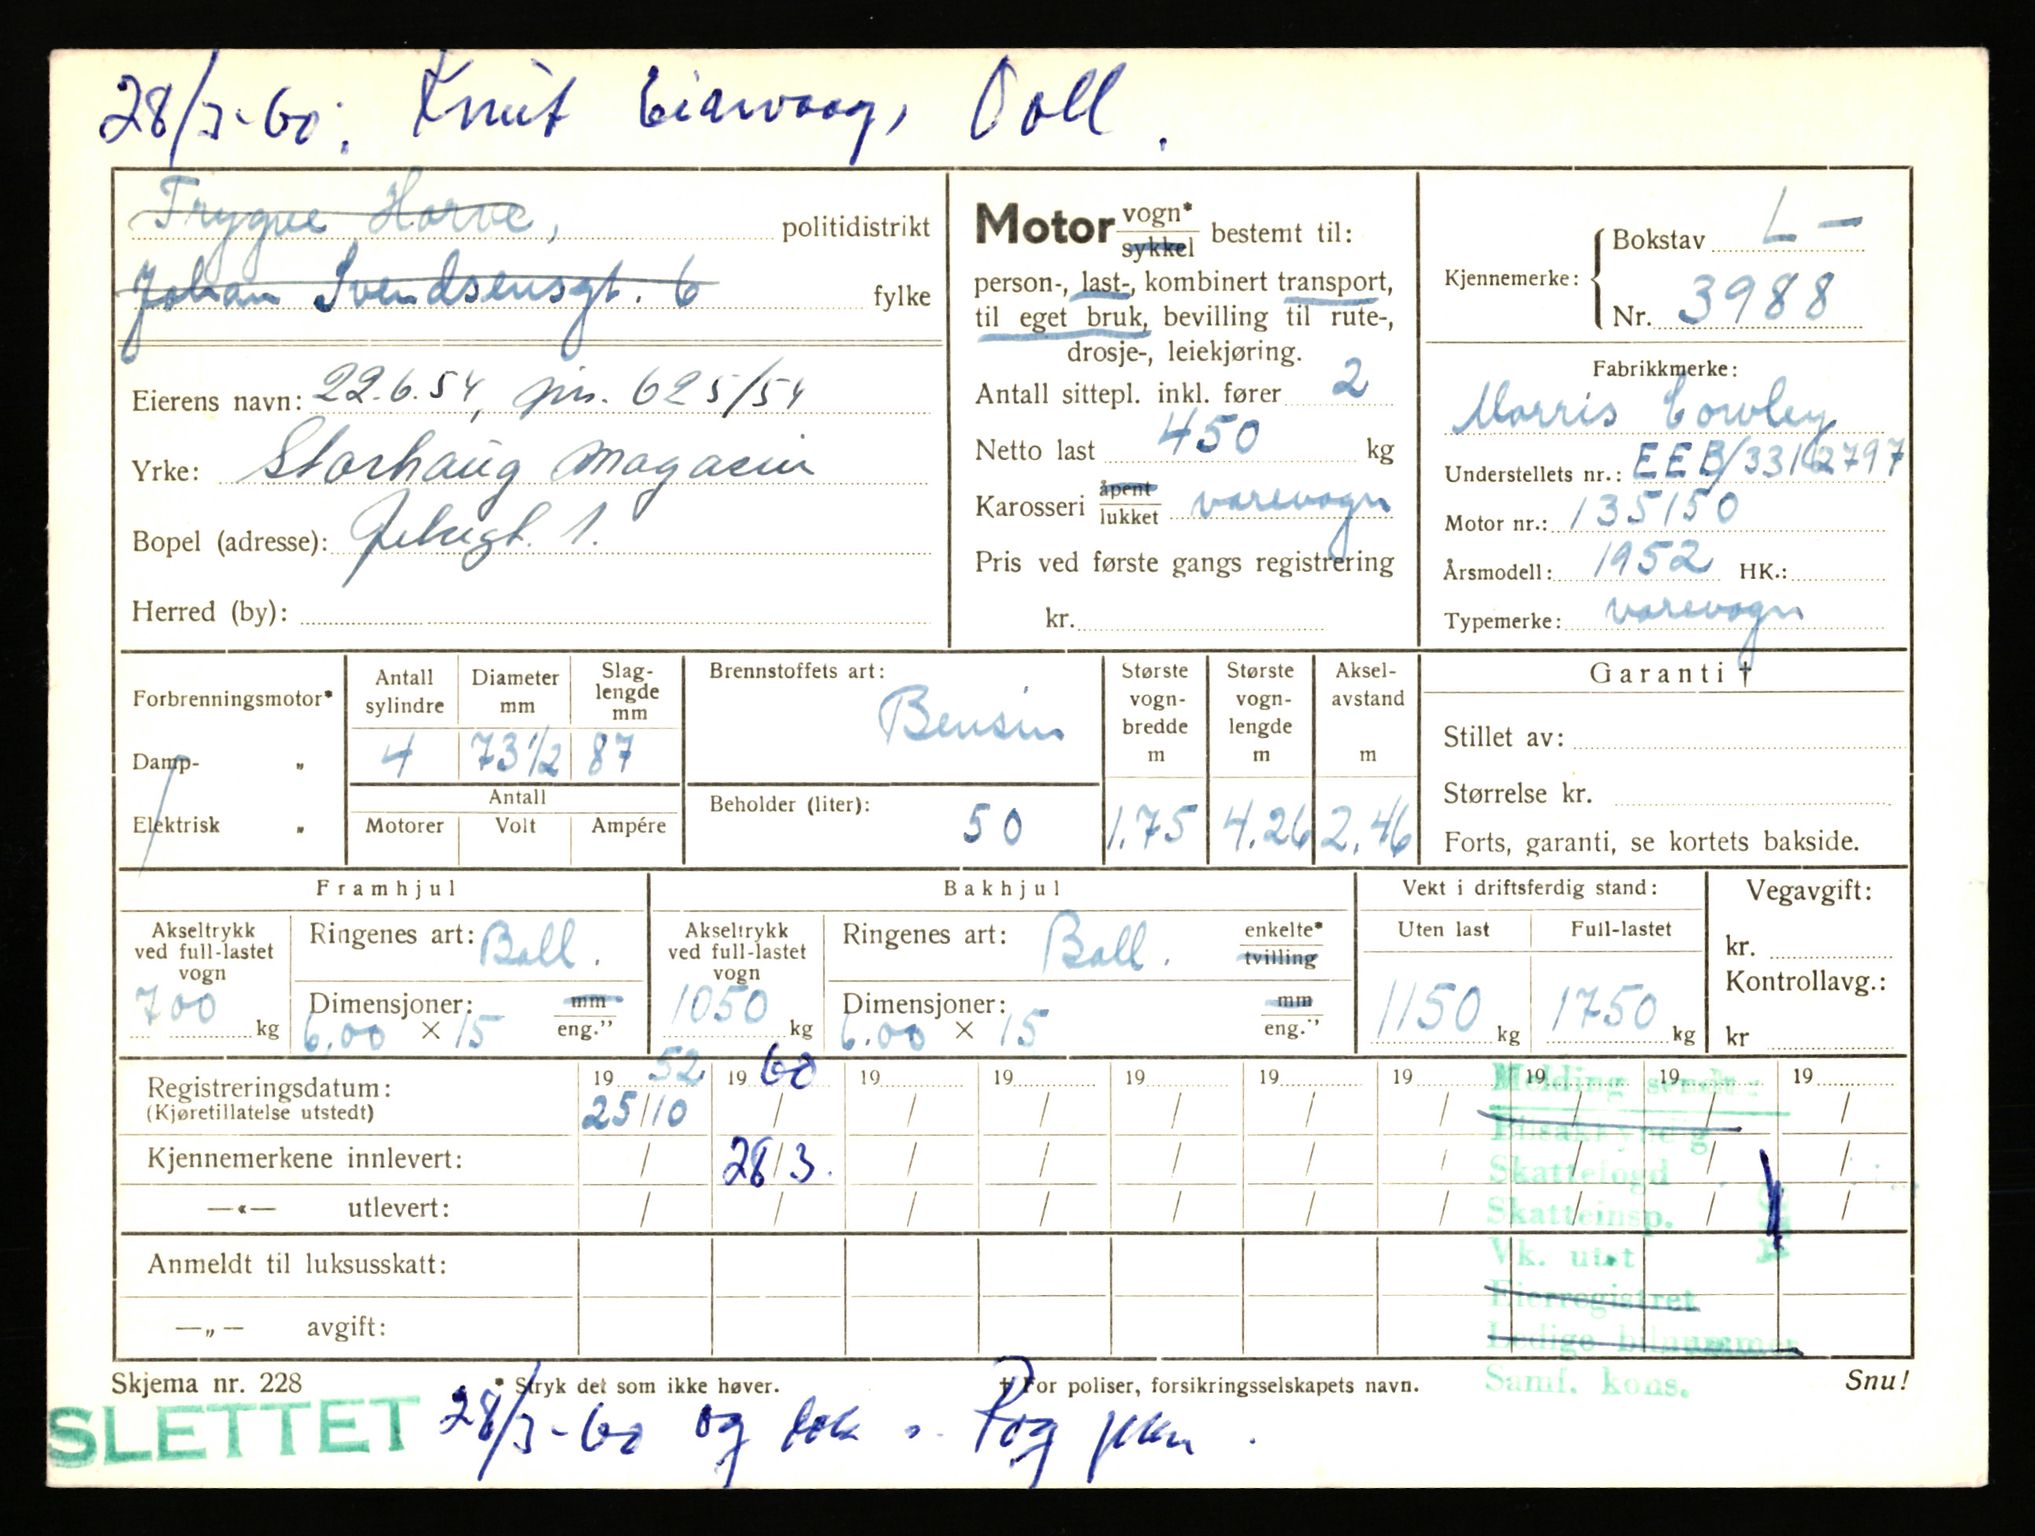 28/3-60: Knut Eidwaag,
Trygve Horve, politidistrikt
Johan Svendsensgt. 6 fylke
Eierens navn: 22.6.54, jnr. 625/54
Yrke: Storhaug Magasin
Bopel (adresse): Jelsagt. 1.
Herred (by):
Motor vogn* sykkel bestemt til:
person-, last-, kombinert transport,
til eget bruk, bevilling til rute-,
drosje-, leiekjøring.
Antall sittepl. inkl. fører 2
Netto last 450 kg
Karosseri åpent lukket varevogn
Pris ved første gangs registrering
kr.
Kjennemerke: Bokstav L-
Nr. 3988
Fabrikkmerke:
Morris Cowley
Understellets nr.: EEB/33162797
Motor nr.: 135150
Årsmodell: 1952 HK.:
Typemerke: varevogn
Forbrenningsmotor*
Damp- „
Elektrisk „
Antall sylindre Diameter mm Slag-lengde mm
4 73 1/2 87
Antall
Motorer Volt Ampére
Brennstoffets art:
Bensin
Beholder (liter):
50
Største vogn-bredde m
1.75
Største vogn-lengde m
4.26
Aksel-avstand m
2.46
Garanti †
Stillet av:
Størrelse kr.
Forts, garanti, se kortets bakside.
Framhjul
Akseltrykk ved full-lastet vogn
700 kg
Ringenes art: Ball.
Dimensjoner: mm
6.00 × 15 eng.”
Bakhjul
Akseltrykk ved full-lastet vogn
1050 kg
Ringenes art: Ball. enkelte* tvilling
Dimensjoner: mm
6.00 × 15 eng.”
Vekt i driftsferdig stand:
Uten last Full-lastet
1150 kg 1750 kg
Vegavgift:
kr.
Kontrollavg.:
kr
Registreringsdatum: 19 52 19 60 19 19 19 19 19 19 19 19
(Kjøretillatelse utstedt) 25/10 / / / / / / / / /
Kjennemerkene innlevert: / 28/3. / / / / / / / /
—«— utlevert: / / / / / / / / / /
Anmeldt til luksusskatt:
—„— avgift:
Melding sendt:
Skattefogd
Skatteinsp.
Vk. utst
Eierregistret
Ledige bilnummer
Samf. kons.
Skjema nr. 228
* Stryk det som ikke høver.
† For poliser, forsikringsselskapets navn.
Snu!
SLETTET 28/3-60 og